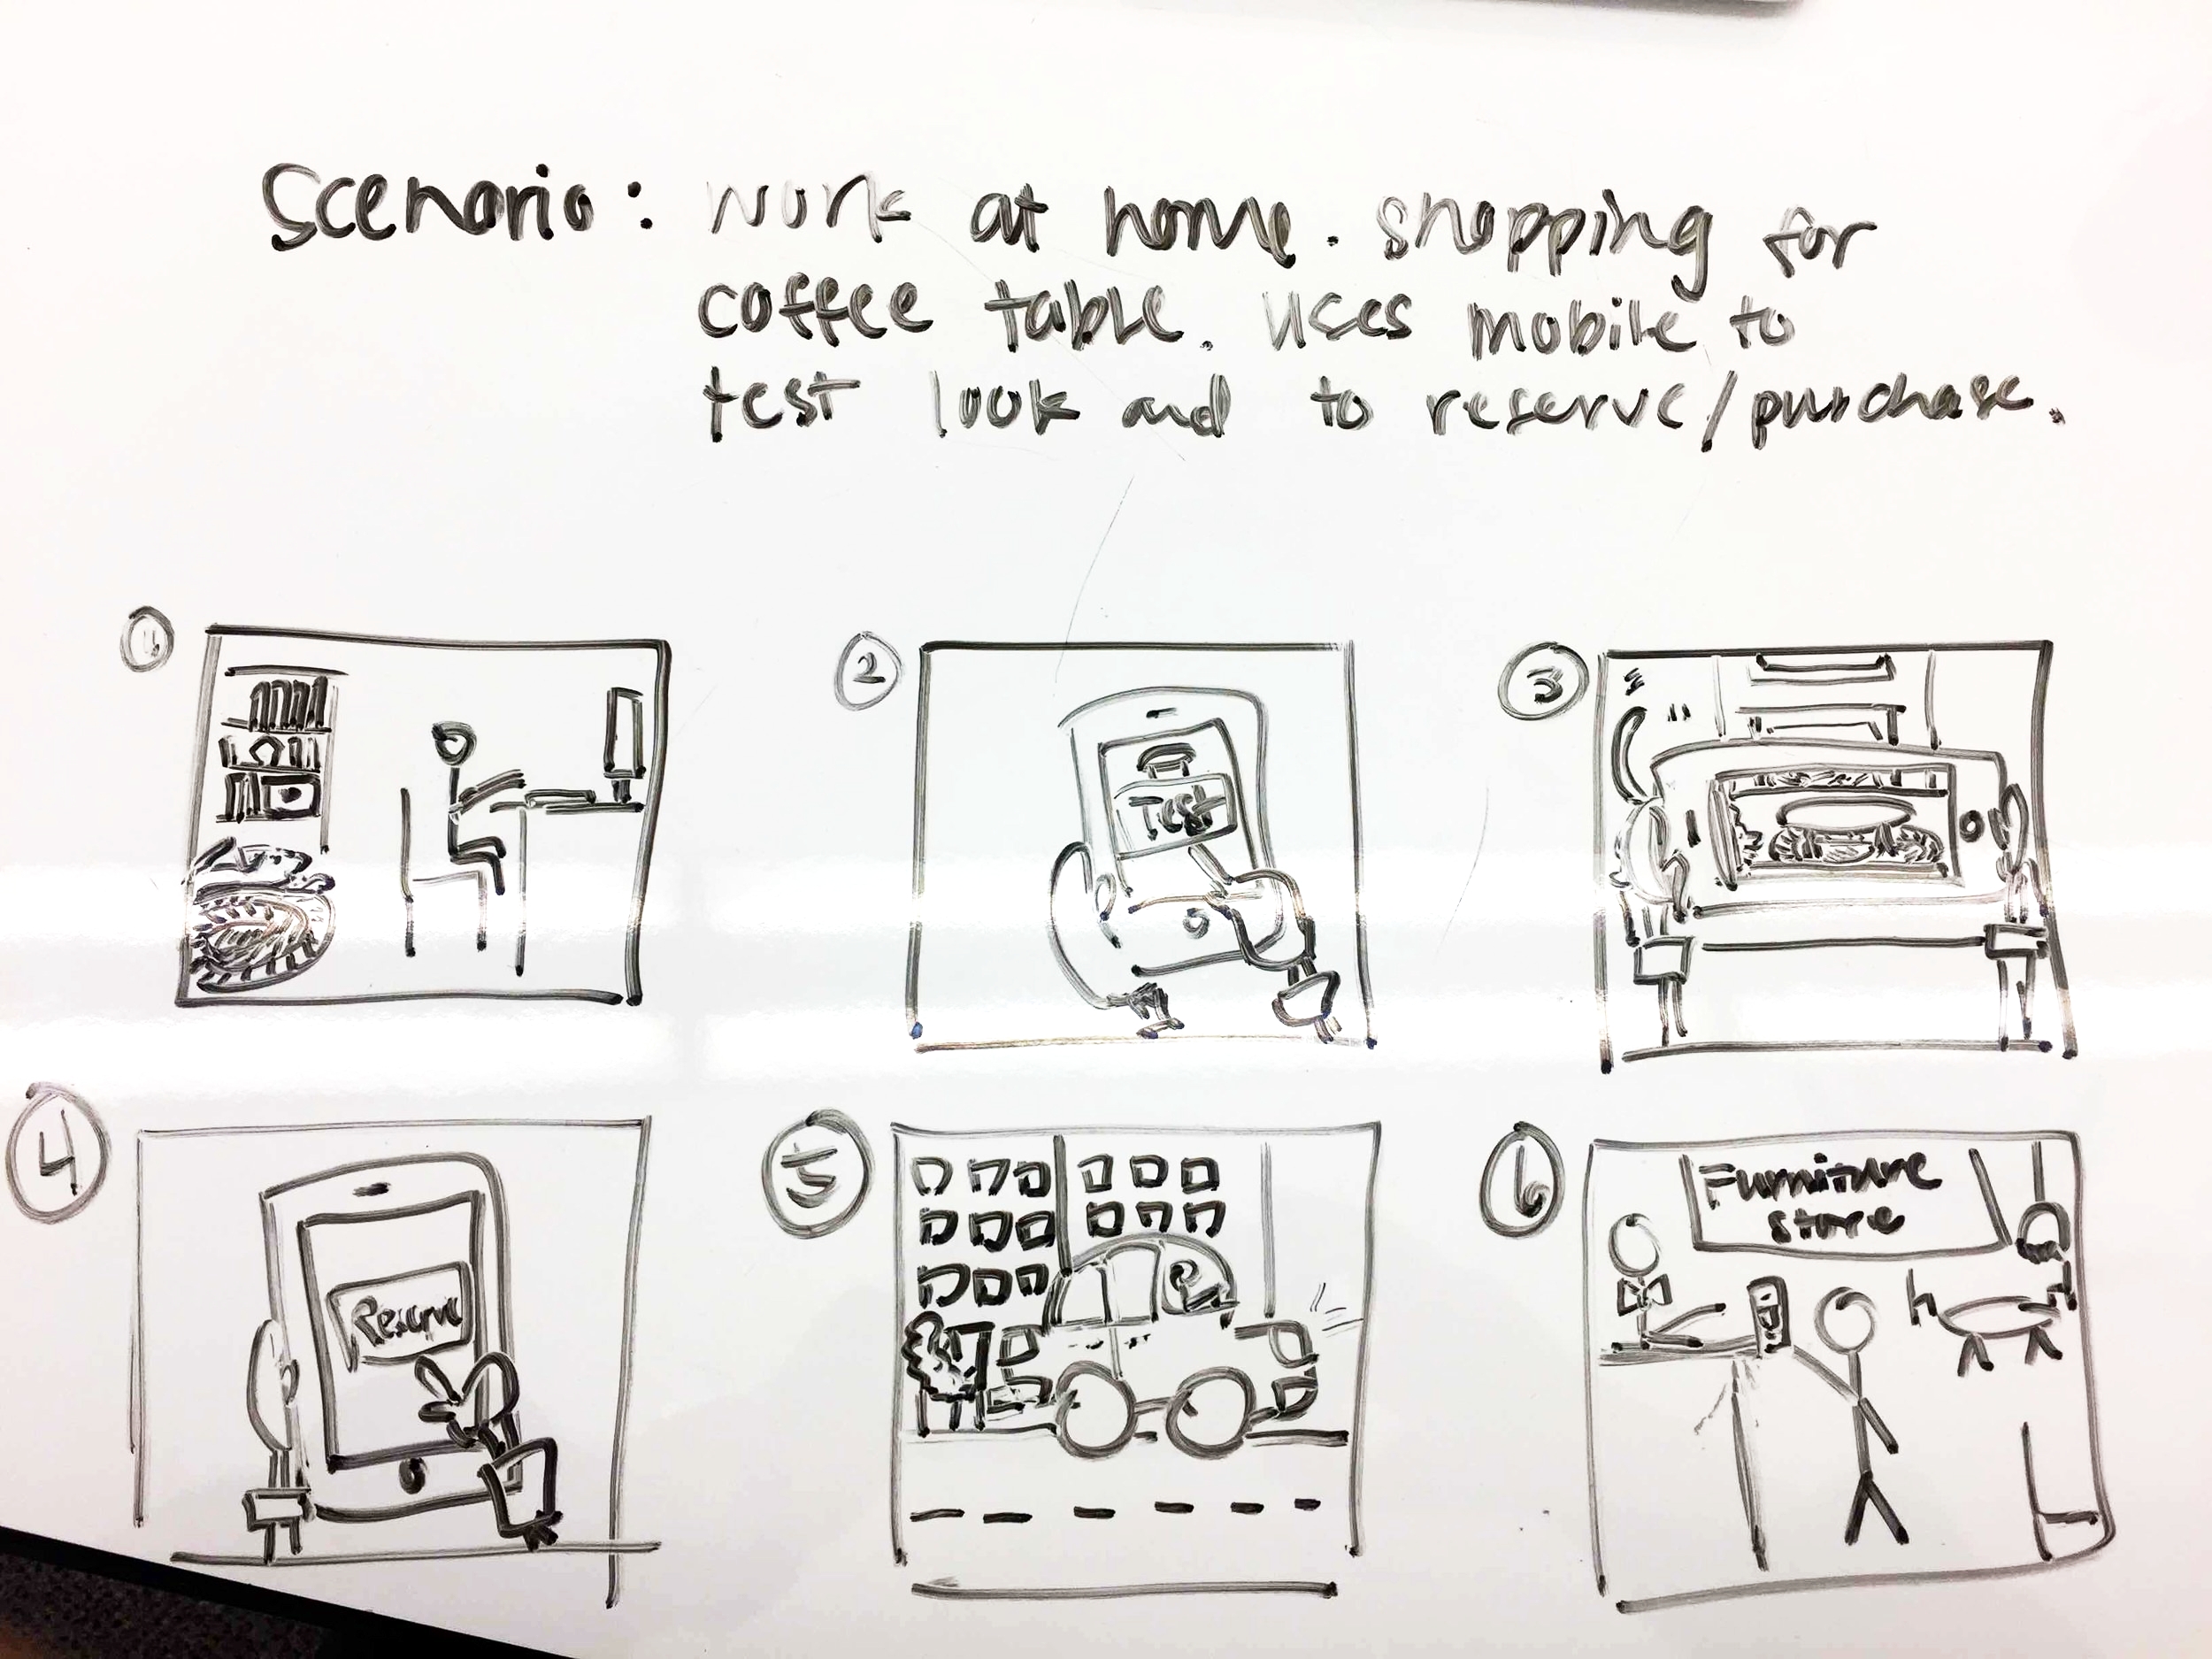 Scenario: work at home. shopping for
coffee table. uses mobile to
test look and to reserve/purchase.
1
2
3
Test
4
5
6
Reserve
Furniture
store